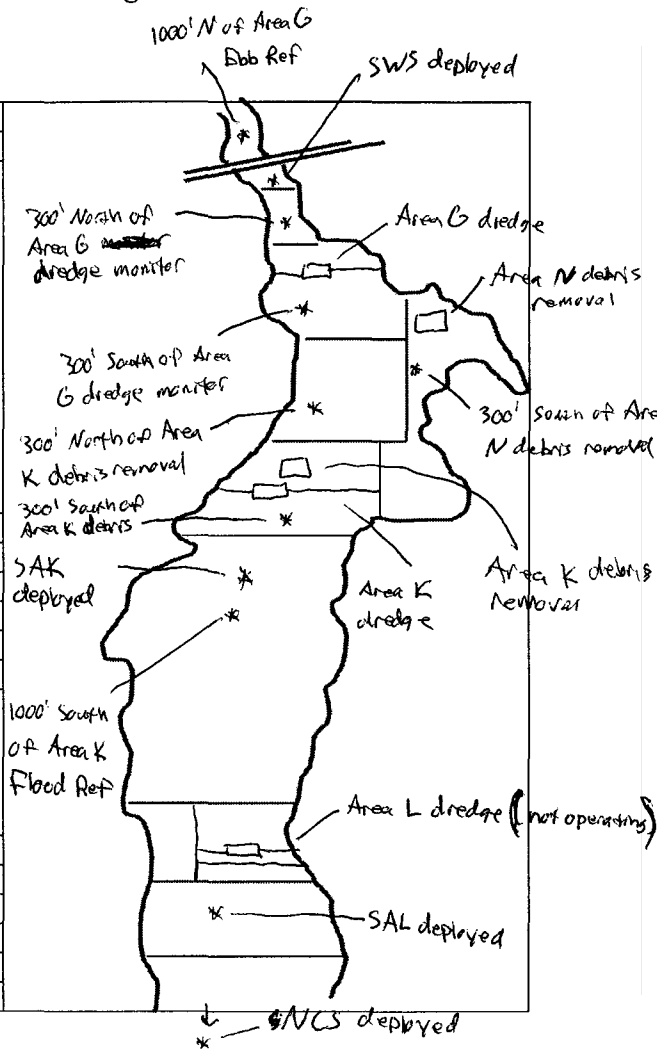 1000' N of Area G
Ebb Ref
SWS deployed
300' North of
Area G
dredge monitor
Area G dredge
Area N debris
removal
300' South of Area
G dredge monitor
300' South of Area
N debris removal
300' North of Area
K debris removal
300' South of
Area K debris
SAK
deployed
Area K
dredge
Area K debris
removal
1000' South
of Area K
Flood Ref
Area L dredge (not operating)
SAL deployed
NCS deployed